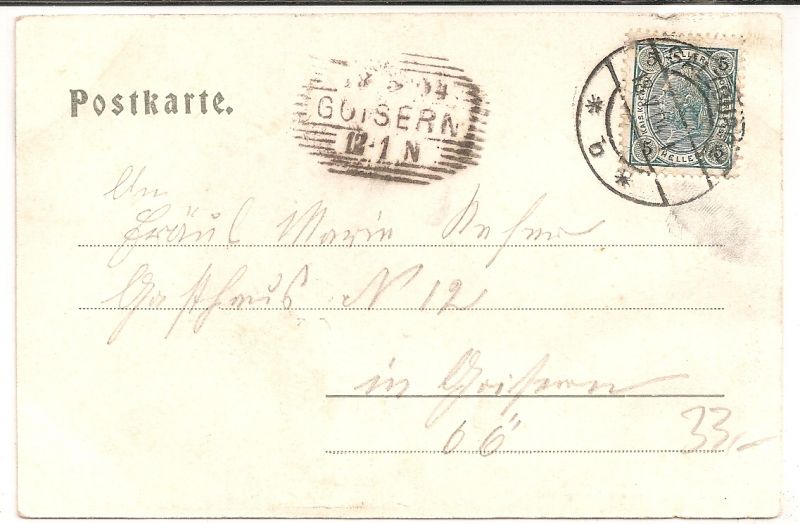 Postkarte.
GOISERN
12-1 N
* b *
5 HELLER 5
5 5
An
Fräul Marie
Gasthaus N 12
in Goisern
66
33,-